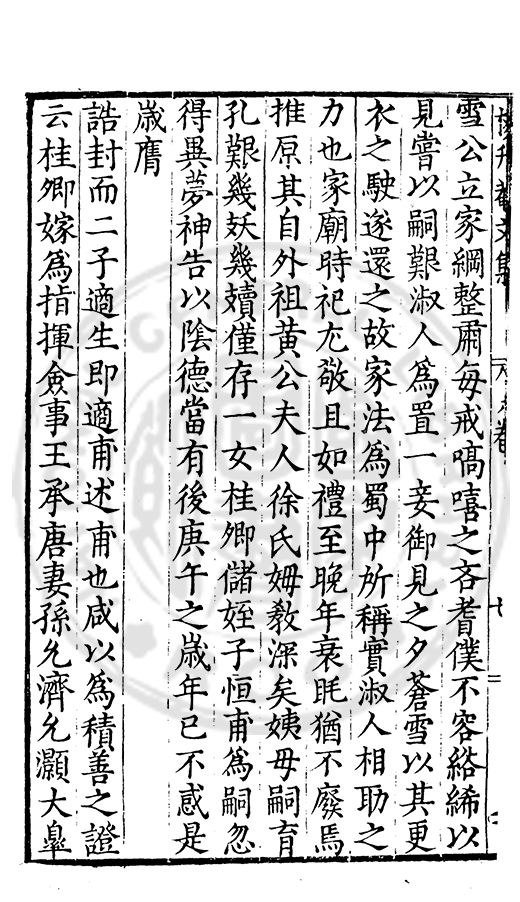 雪公立家綱整肅每戒嗃嘻之吝耆僕不容綌絺以
見嘗以嗣艱淑人為置一妾御見之夕蒼雪以其更
衣之駛遂還之故家法為蜀中所稱實淑人相助之
力也家廟時祀尤敬且如禮至晚年衰眊猶不廢焉
推原其自外祖黃公夫人徐氏姆教深矣姨毋嗣育
孔艱幾妖幾殰僅存一女桂卿儲姪子恒甫為嗣忽
得異夢神告以陰德當有後庚午之歲年已不惑是
歲膺
誥封而二子適生即適甫述甫也咸以為積善之證
云桂卿嫁為指揮僉事王承唐妻孫允濟允灝大臯